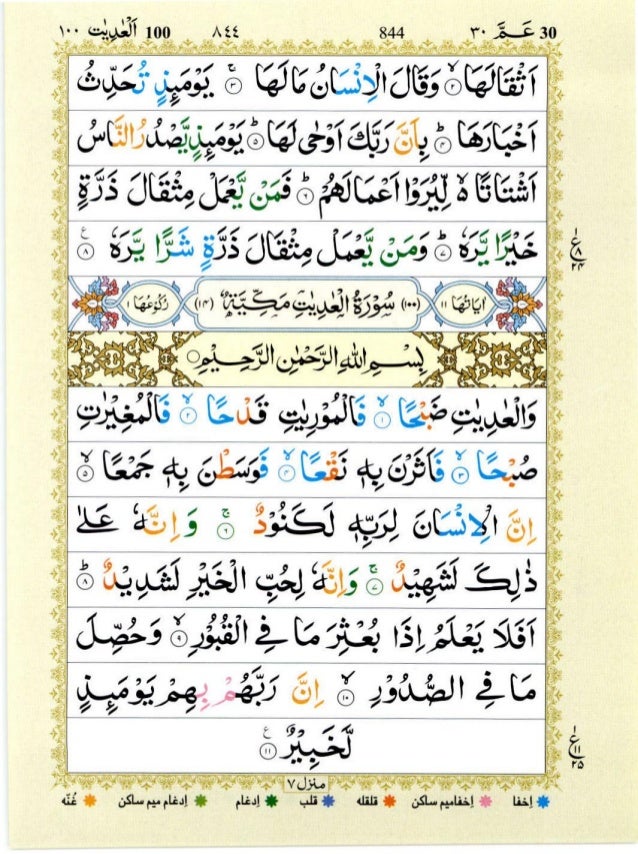 ١٠٠ اَلْعٰدِيٰت 100 ٨٤٤ 844 عَمَّ ٣٠ 30
اَثْقَالَهَا ۙ‏﴿۲﴾ وَقَالَ الْاِنْسَانُ مَا لَهَا ۚ‏﴿۳﴾ يَوْمَئِذٍ تُحَدِّثُ
اَخْبَارَهَا ۙ‏﴿۴﴾ بِاَنَّ رَبَّكَ اَوْحٰى لَهَا ؕ‏﴿۵﴾ يَوْمَئِذٍ يَّصْدُرُ النَّاسُ
اَشْتَاتًا ۙ۬ لِّيُرَوْا اَعْمَالَهُمْ ؕ‏﴿۶﴾ فَمَنْ يَّعْمَلْ مِثْقَالَ ذَرَّةٍ
خَيْرًا يَّرَهٗ ؕ‏﴿۷﴾ وَمَنْ يَّعْمَلْ مِثْقَالَ ذَرَّةٍ شَرًّا يَّرَهٗ ‏﴿۸﴾
ع ٨ ٢٤
اٰيَاتُهَا ١١ (١٠٠) سُوْرَةُ الْعٰدِيٰتِ مَكِّيَّةٌ (١٤) رُكُوْعُهَا ١
بِسْمِ اللّٰهِ الرَّحْمٰنِ الرَّحِيْمِ
وَالْعٰدِيٰتِ ضَبْحًا ۙ‏﴿۱﴾ فَالْمُوْرِيٰتِ قَدْحًا ۙ‏﴿۲﴾ فَالْمُغِيْرٰتِ
صُبْحًا ۙ‏﴿۳﴾ فَاَثَرْنَ بِهٖ نَقْعًا ۙ‏﴿۴﴾ فَوَسَطْنَ بِهٖ جَمْعًا ۙ‏﴿۵﴾
اِنَّ الْاِنْسَانَ لِرَبِّهٖ لَكَنُوْدٌ ۚ‏﴿۶﴾ وَاِنَّهٗ عَلٰى
ذٰلِكَ لَشَهِيْدٌ ۚ‏﴿۷﴾ وَاِنَّهٗ لِحُبِّ الْخَيْرِ لَشَدِيْدٌ ؕ‏﴿۸﴾
اَفَلَا يَعْلَمُ اِذَا بُعْثِرَ مَا فِى الْقُبُوْرِ ۙ‏﴿۹﴾ وَحُصِّلَ
مَا فِى الصُّدُوْرِ ۙ‏﴿۱۰﴾ اِنَّ رَبَّهُمْ بِهِمْ يَوْمَئِذٍ
لَّخَبِيْرٌ ‏﴿۱۱﴾
ع ١١ ٢٥
منزل ٧
اِخفا اِخفامیم ساکن قلقله قلب اِدغام اِدغام میم ساکن غُنّه